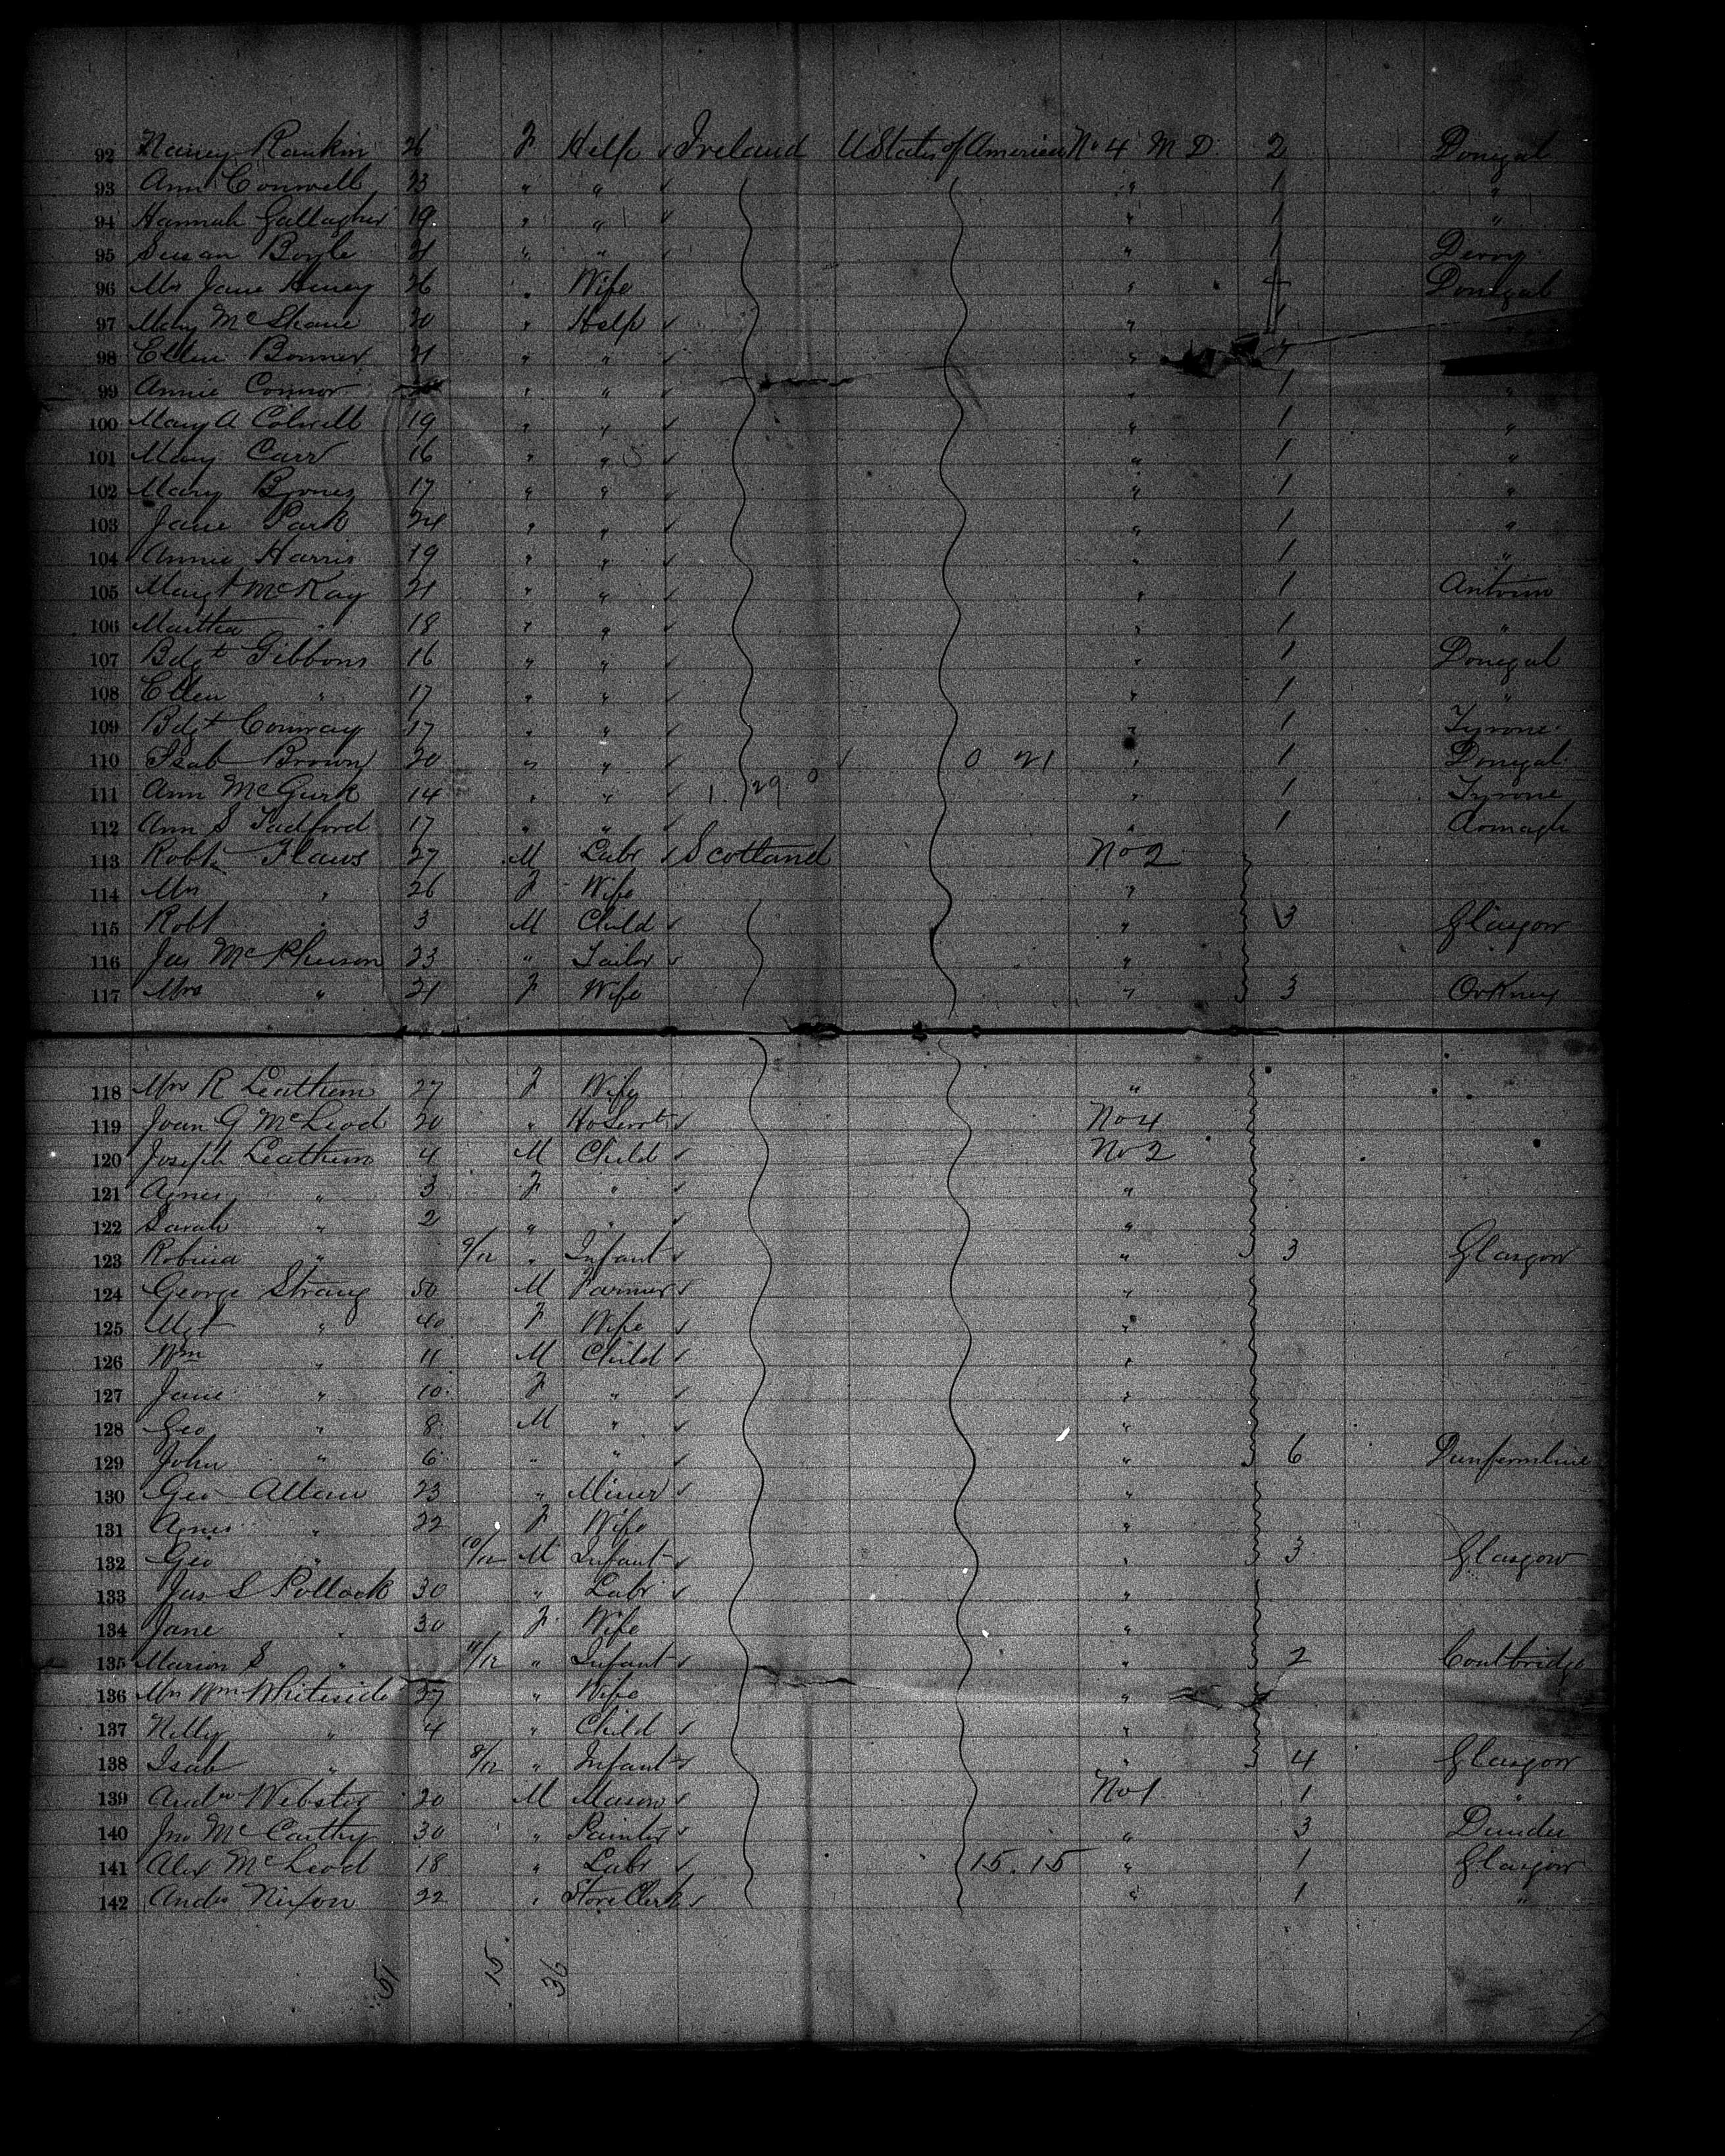 92 Nancy Rankin 26 F Help ✓ Ireland U States of America No 4 M D 2 Donegal
93 Ann Conwell 23 " " ✓ " 1 "
94 Hannah Gallagher 19 " " ✓ " 1 "
95 Susan Boyle 21 " " ✓ " 1 Derry
96 Mrs Jane Heney 26 " Wife " 4 Donegal
97 Mary McShane 20 " Help ✓ " 1
98 Ellen Bonner 21 " " ✓ "
99 Annie Connor " " ✓ " 1 "
100 Mary A Colwell 19 " " ✓ " 1 "
101 Mary Carr 16 " " ✓ " 1 "
102 Mary 17 " " ✓ " 1 "
103 Jane Park 24 " " ✓ " 1 "
104 Annie Harris 19 " " ✓ " 1 "
105 Margt McKay 21 " " ✓ " 1 Antrim
106 Martha " 18 " " ✓ " 1 "
107 Bdgt Gibbons 16 " " ✓ " 1 Donegal
108 Ellen " 17 " " ✓ " 1 "
109 Bdgt Conway 17 " " ✓ " 1 Tyrone
110 Isab Brown 20 " " ✓ 0 21 " 1 Donegal
111 Ann McGurk 14 " " ✓ 1 29 0 " 1 Tyrone
112 Ann S Tadford 17 " " ✓ " 1 Armagh
113 Robt Flaws 27 M Labr ✓ Scotland No 2
114 Mrs " 26 F Wife "
115 Robt " 3 M Child ✓ " 3 Glasgow
116 Jas McPherson 23 " Tailor ✓ "
117 Mrs " 21 F Wife " 3 Orkney
118 Mrs R Leathem 27 F Wife "
119 Joan G McLeod 20 " Ho Servt ✓ No 4
120 Joseph Leathem 4 M Child ✓ No 2
121 Agnes " 3 F " ✓ "
122 Sarah " 2 " " ✓ "
123 Robina " 9/12 " Infant ✓ " 3 Glasgow
124 George Strang 50 M Farmer ✓ "
125 Mgt " 40 F Wife ✓ "
126 Wm " 11 M Child ✓ "
127 Jane " 10 F " ✓ "
128 Geo " 8 M " ✓ "
129 John " 6 " " ✓ " 6 Dunfermline
130 Geo Allan 23 " Miner ✓ "
131 Agnes " 22 F Wife "
132 Geo " 10/12 M Infant ✓ " 3 Glasgow
133 Jas S Pollock 30 " Labr ✓ "
134 Jane " 30 F Wife "
135 Marion S " 11/12 " Infant ✓ " 2 Coatbridge
136 Mrs Wm Whiteside 27 " Wife "
137 Nelly " 4 " Child ✓ "
138 Isab " 8/12 " Infant ✓ " 4 Glasgow
139 Andw Webster 20 M Mason ✓ No 1 1 "
140 Jno McCarthy 30 " Painter ✓ " 3 Dundee
141 Alex McLeod 18 " Labr ✓ 15.15 " 1 Glasgow
142 Andw Nixon 22 " Store Clerk ✓ " 1 "
51 15 36